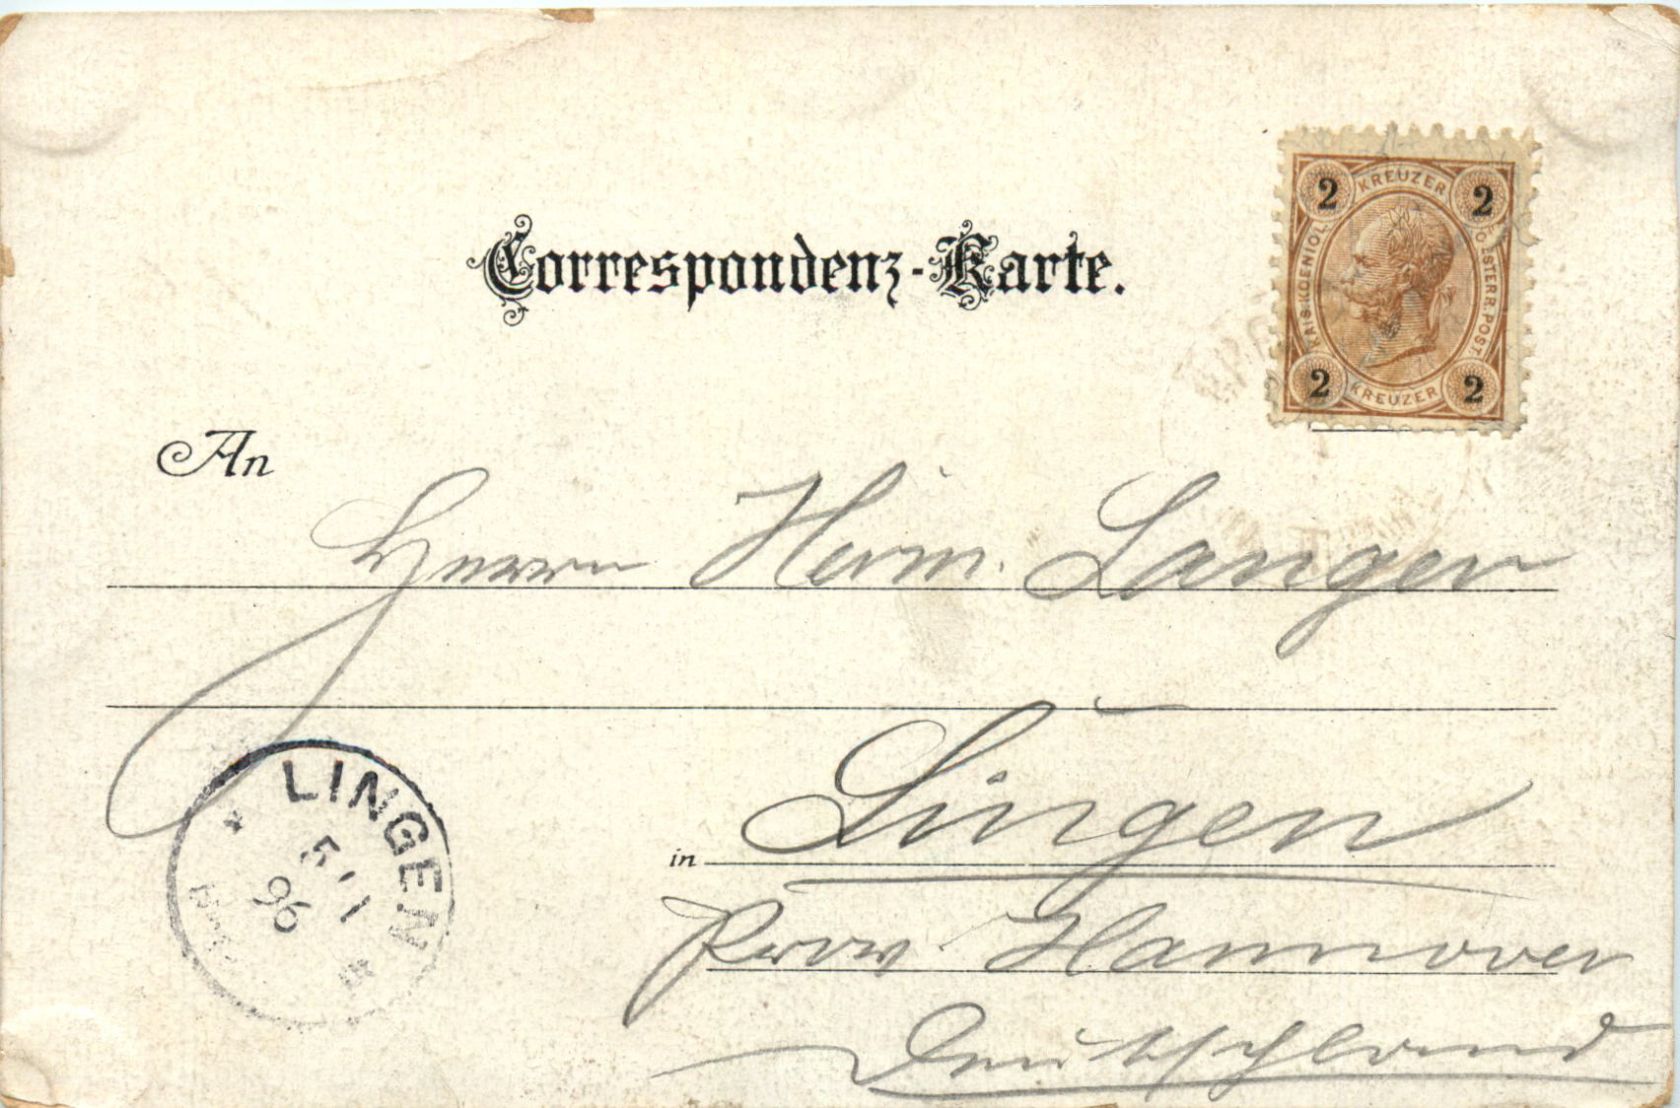 Correspondenz-Karte.
2 KREUZER 2
KAIS. KOENIGL. OESTERR. POST.
2 KREUZER 2
An
Herrn Herm. Langer
Lingen
in
Prov. Hannover
Deutschland
LINGEN
5/1
96